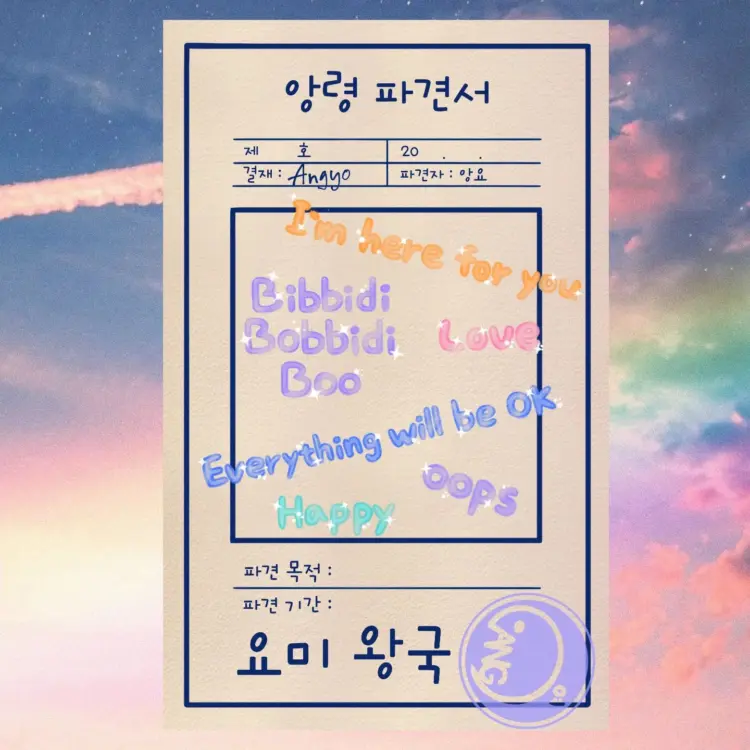 앙령 파견서
제 호
20 . .
결재 : Angyo
파견자 : 앙요
I'm here for you
Bibbidi
Bobbidi
Boo
Love
Everything will be OK
oops
Happy
파견 목적 :
파견 기간 :
요미 왕국
ANG